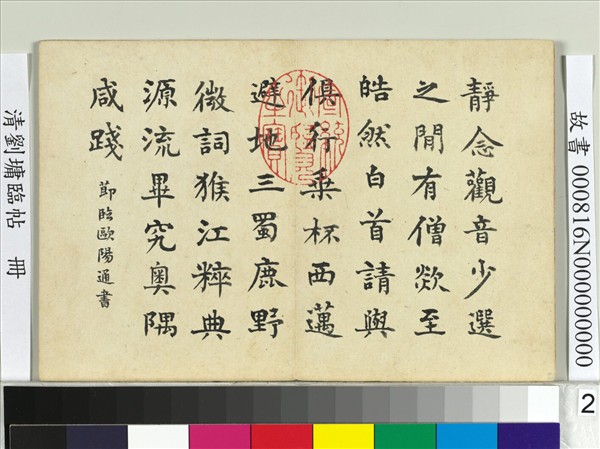 靜念觀音少選
之間有僧欻至
皓然白首請與
俱行乗杯西邁
避地三蜀鹿野
微詞猴江粹典
源流畢究奧隅
咸踐
節臨歐陽通書
故書 000816N000000000
清劉墉臨帖 冊
2